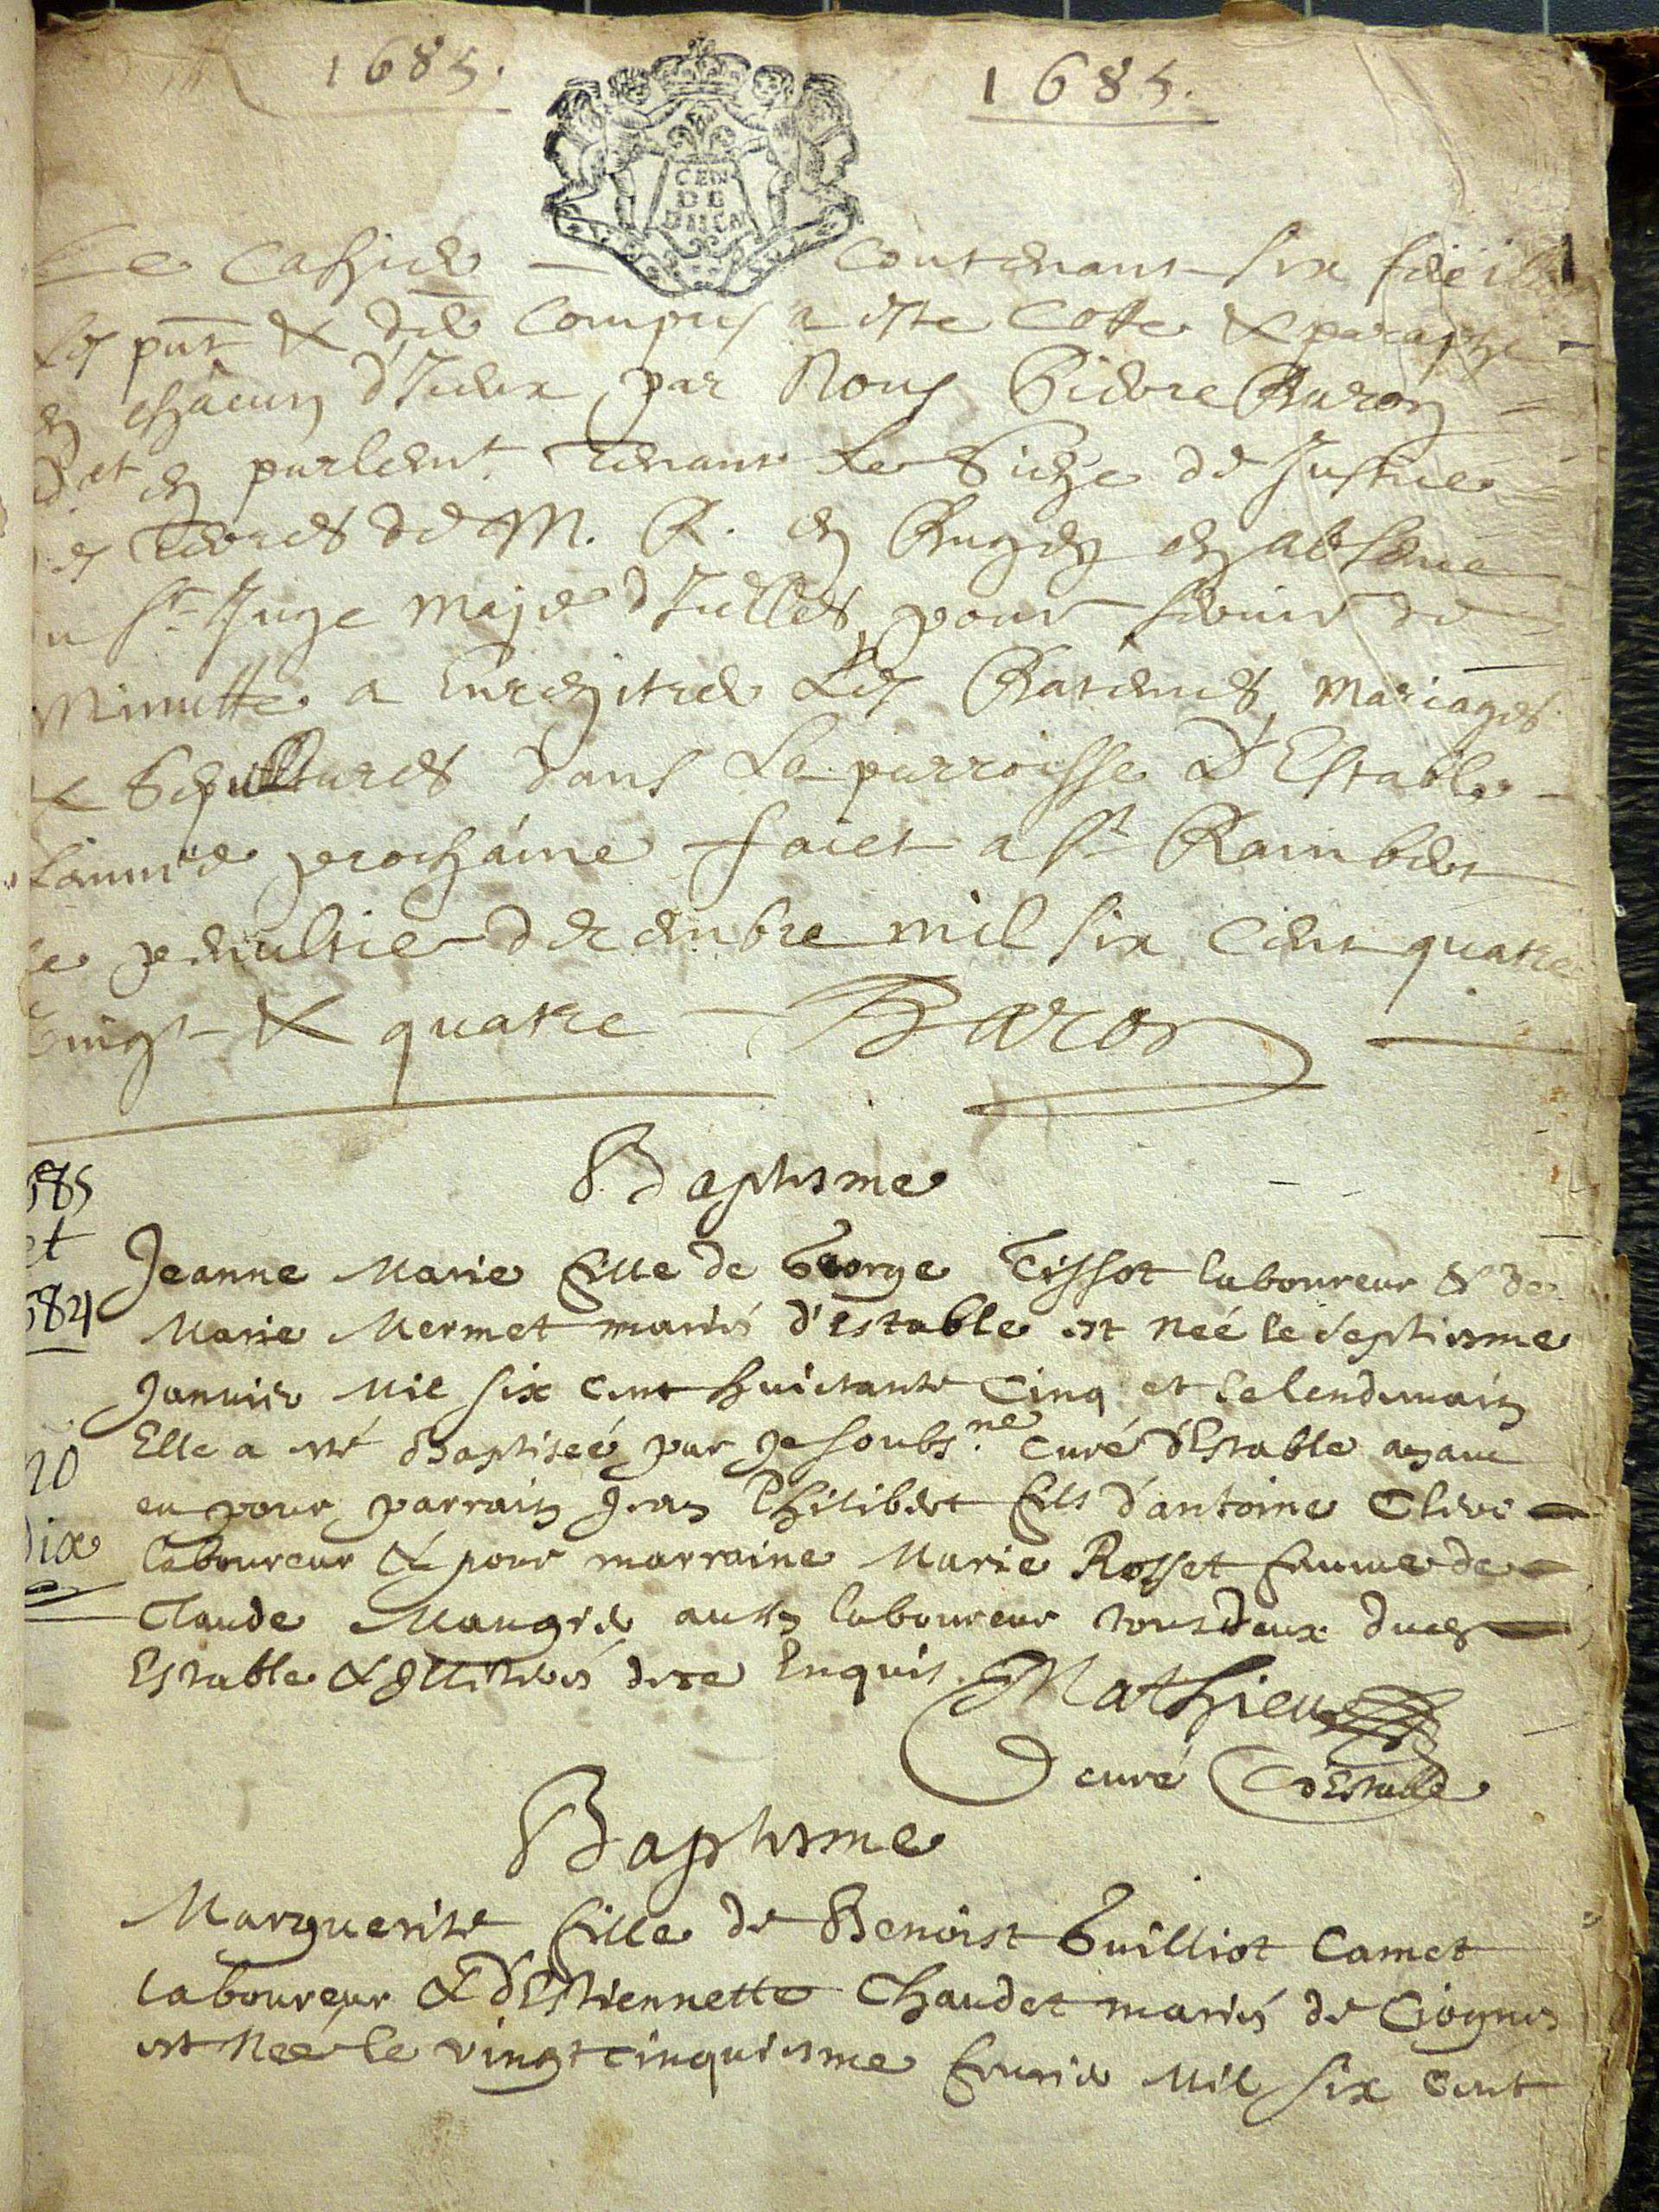 1685. 1685.
CEN
DE
Le Cahier contenant six feuil
les pnt & der compris a esté cotté & paraphé
en chacun d'Iceux par Nous Pierre Baron
et en parlent tenant Le Siege de Justice
es terres de M. R. en Bugey en absence
u Sr Juge Maje d'Icelles, pour servir de
Minutte a Enregistrer Les Baptemes, Mariages
& Sepultures dans La parroisse D'Estable
L'année prochaine faict a St Rambert
le penultie decembre mil six cent quatre
vingt & quatre Baron
685
et
684
no
dix
Baptesme
Jeanne Marie fille de George Tissot laboureur & de
Marie Mermet mariés d'Estable est neé le septiesme
Janvier Mil six cent huictante Cinq et le lendemain
Elle a esté Baptiseé par Je soubs.né curé d'Estable ayant
eu pour parrain Jean Philibert fils d'antoine
laboureur & pour marraine Marie Rosset femme de
Claude Maugrer aussy laboureur tous deux dudt
Estable & Illiterés de ce Enquis. Mathieu
curé d'Estable
Baptesme
Marguerite fille de Benoist Guilliot Camet
laboureur & d'Estiennette Chaudet mariés de
est Neé le vingt cinquiesme feurier Mil six cent